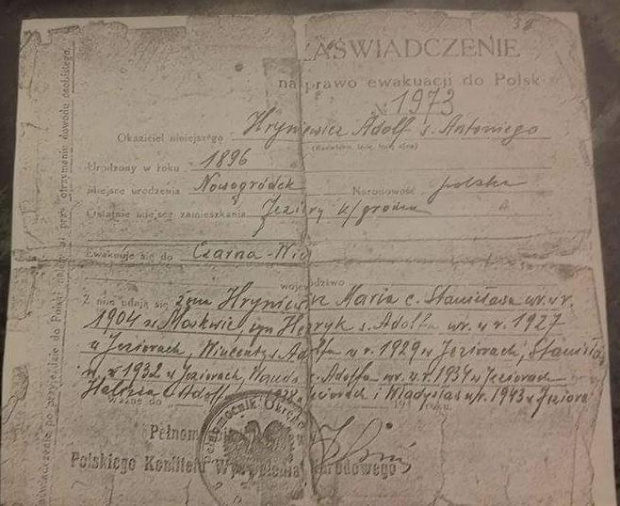 38
ZAŚWIADCZENIE
na prawo ewakuacji do Polsk
№ 1973
Okaziciel niniejszego Hryniewicz Adolf s. Antoniego
(Nazwisko, imię, imię ojca)
Urodzony w roku 1896
miejsce urodzenia Nowogródek Narodowość polska
Ostatnie miejsce zamieszkania Jeziory k/grodna
Ewakuuje się do Czarna-Wie
województwo
Z nim udają się żona Hryniewicz Maria c. Stanisława ur. w r.
1904 w Moskwie, syn Henryk s. Adolfa ur. w r. 1927
w Jeziorach, Wincenty s. Adolfa u r. 1929 w Jeziorach, Stanisław
1932 w Jeziorach, Wanda c. Adolfa ur. w r. 1934 w Jeziorach
Halina c. Adolfa 1938 w Jeziorach i Władysław ur. 1943 w Jeziora
Ważne do 194 roku
Pełnom
Polskiego Komitetu Wyzwolenia Narodowego
Pełnomocnik Okręgo
zaświadczenie po przyjeździe do Polski należy przy otrzymaniu dowodu osobistego.